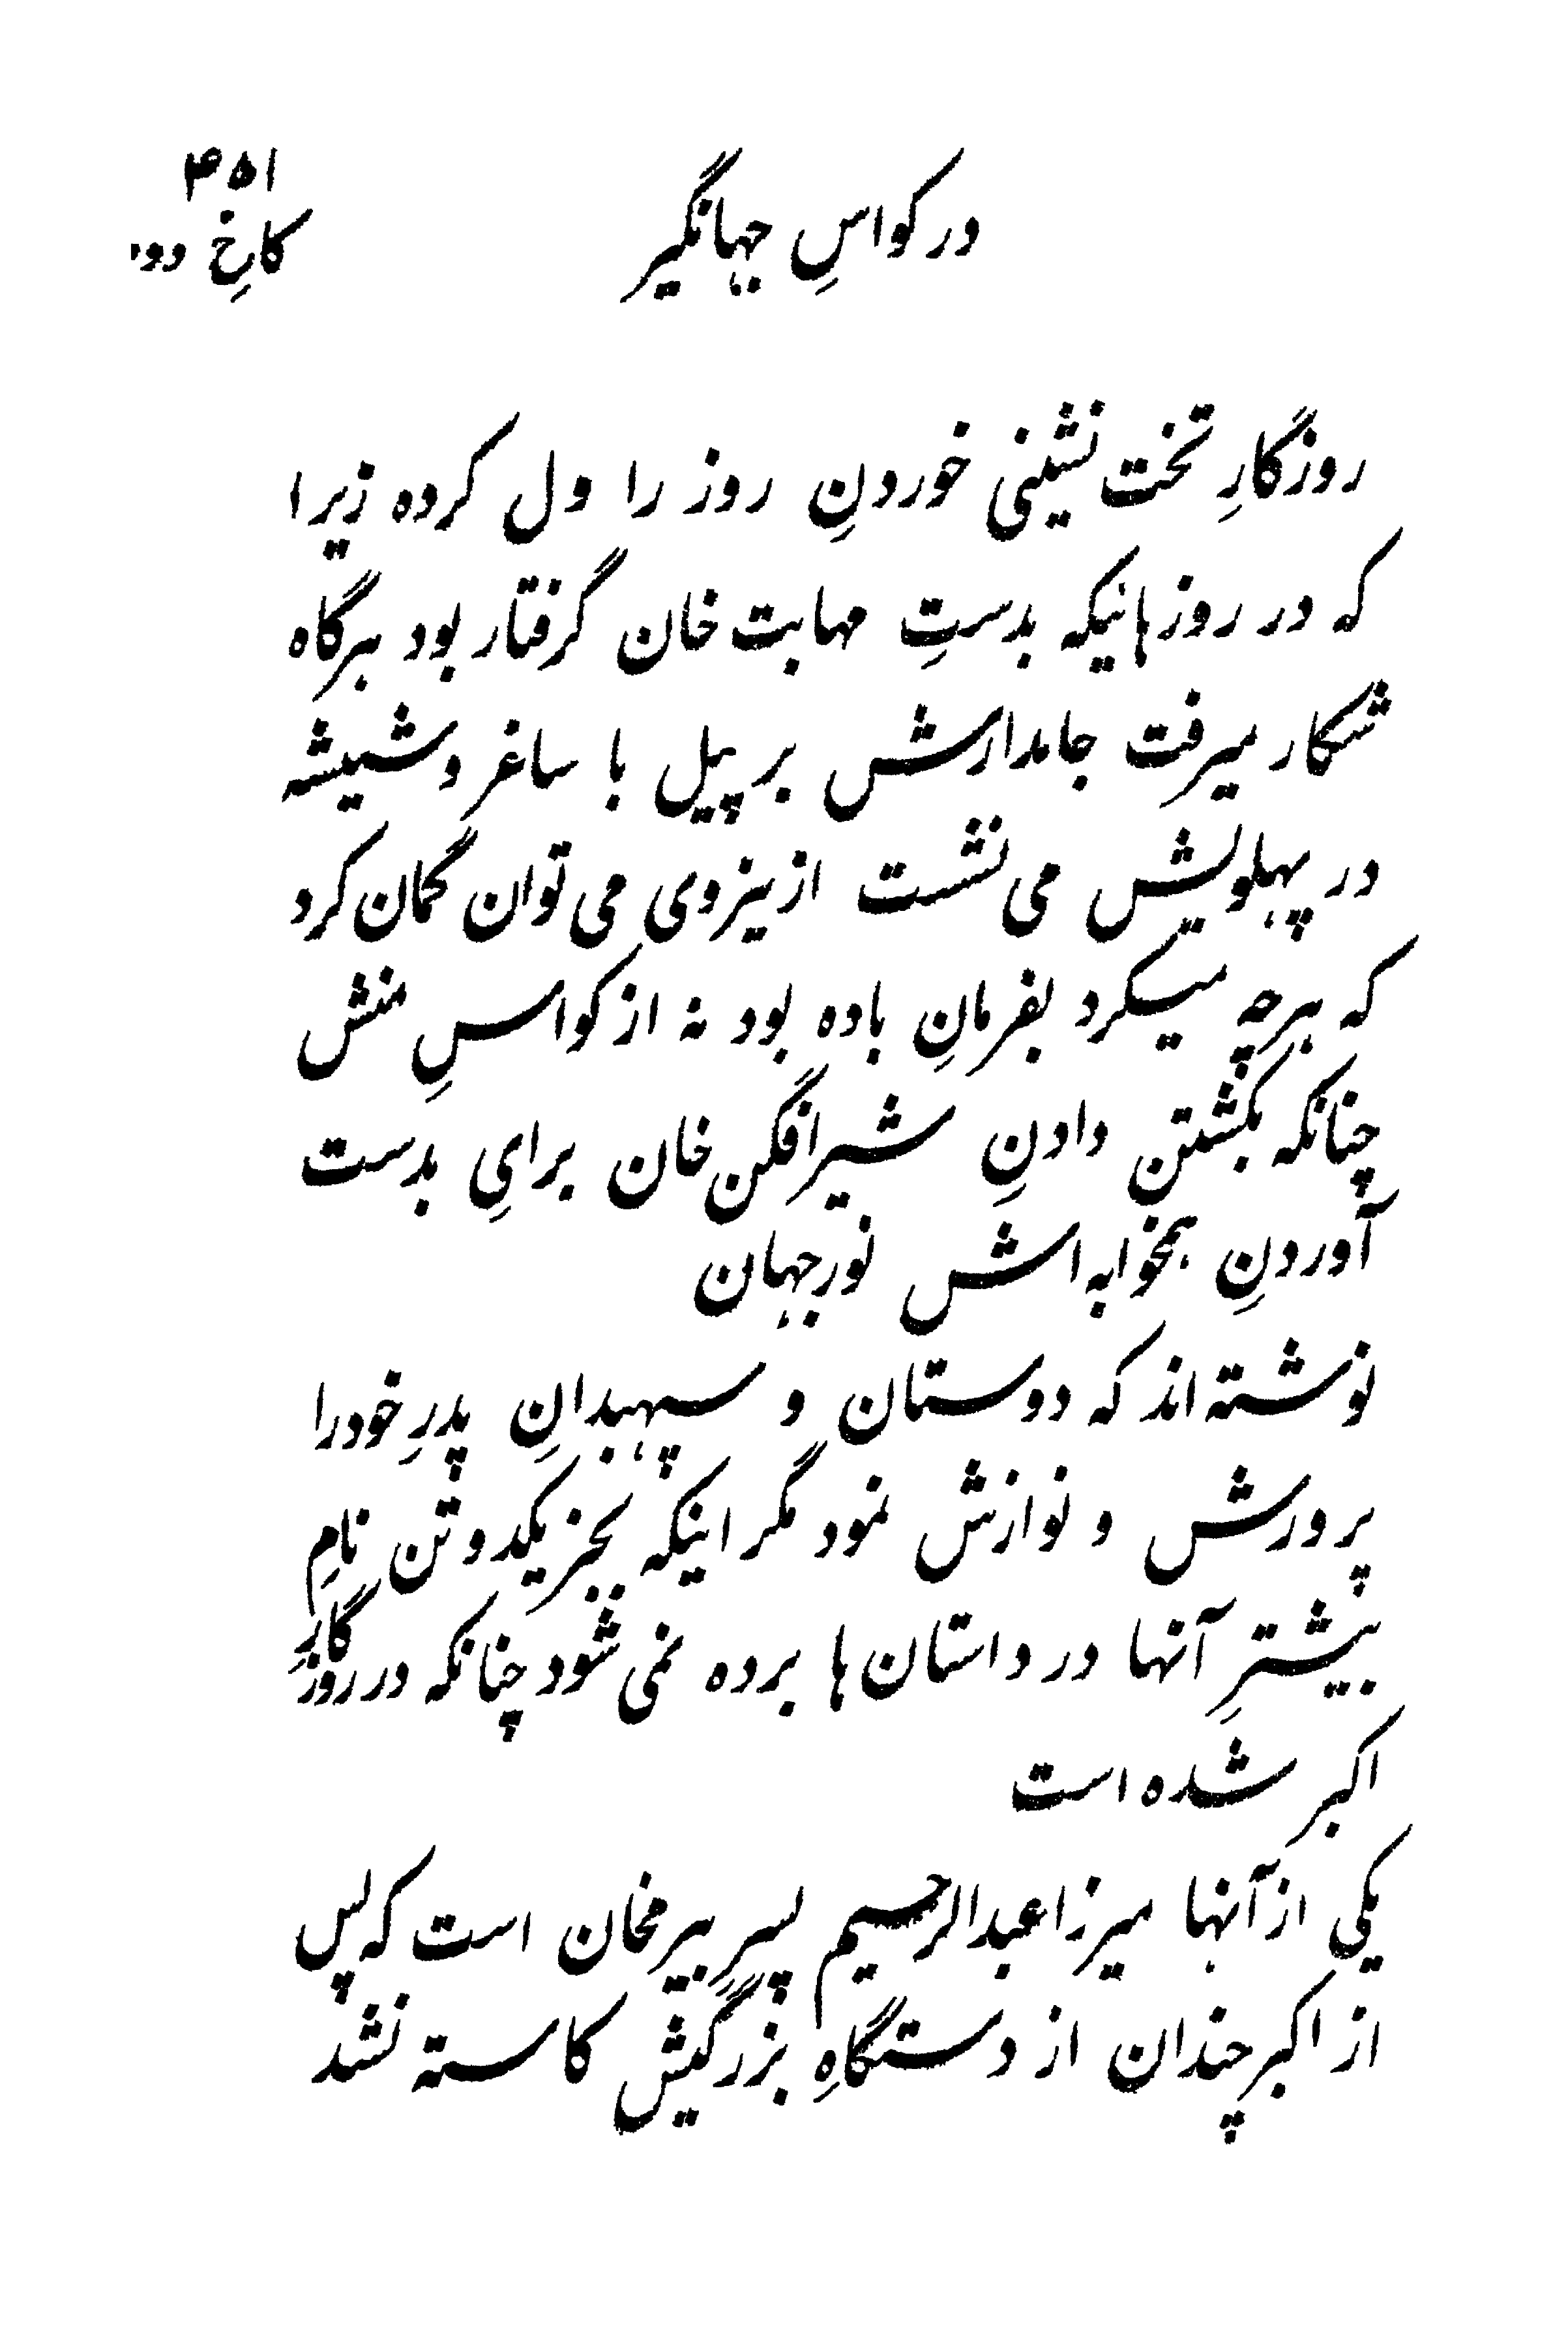 ۴۵۱
در کواسِ جهانگیر
کاخِ دو
روزگارِ تخت نشینی خوردنِ روز را ول کرده زیرا
که در روزهائیکه بدستِ مهابت خان گرفتار بود هرگاه
شکار میرفت جامدارش بر پیل با ساغر و شیشه
در پهلویش می نشست ازینروی می توان گمان کرد
که هرچه میکرد بفرمانِ باده بود نه از کواسِ منش
چنانکه بکشتن دادنِ شیرافگن خان برایِ بدست
آوردنِ همخوابه اش نورجهان
نوشته اند که دوستان و سپهبدانِ پدرِ خود را
پرورش و نوازش نمود مگر اینکه بجز یکدو تن نامِ
بیشترِ آنها در داستان ها برده نمی شود چنانکه در روزگارِ
اکبر شده است
یکی از آنها میرزا عبدالرحیم پسرِ بیرمخان است که پس
از اکبر چندان از دستگاهِ بزرگیش کاسته نشد